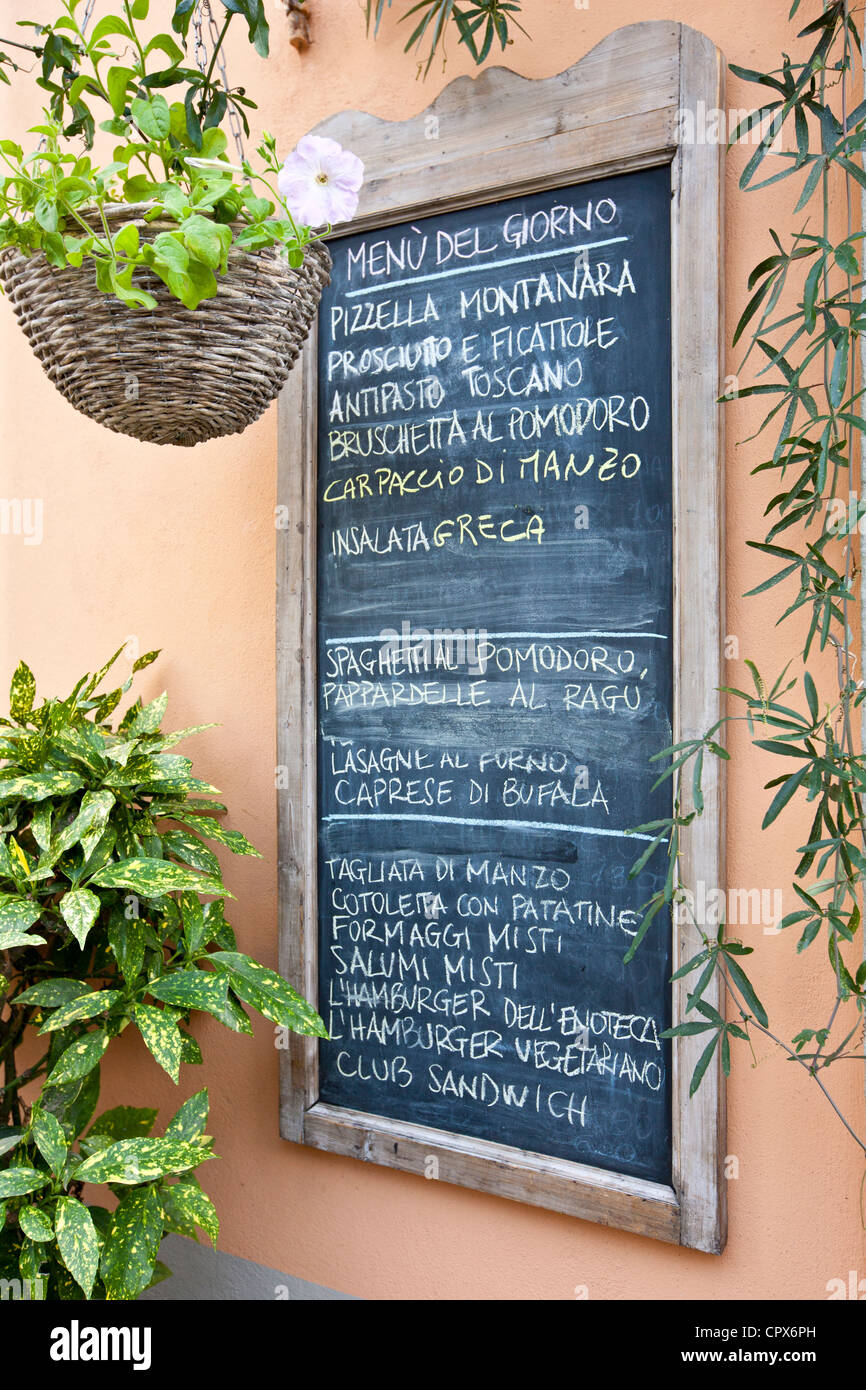 MENÙ DEL GIORNO
PIZZELLA MONTANARA
PROSCIUTTO E FICATTOLE
ANTIPASTO TOSCANO
BRUSCHETTA AL POMODORO
CARPACCIO DI MANZO
INSALATA GRECA
SPAGHETTI AL POMODORO,
PAPPARDELLE AL RAGÙ
LASAGNE AL FORNO
CAPRESE DI BUFALA
TAGLIATA DI MANZO
COTOLETTA CON PATATINE
FORMAGGI MISTI
SALUMI MISTI
L'HAMBURGER DELL'ENOTECA
L'HAMBURGER VEGETARIANO
CLUB SANDWICH
alamy
Image ID: CPX6PH
www.alamy.com